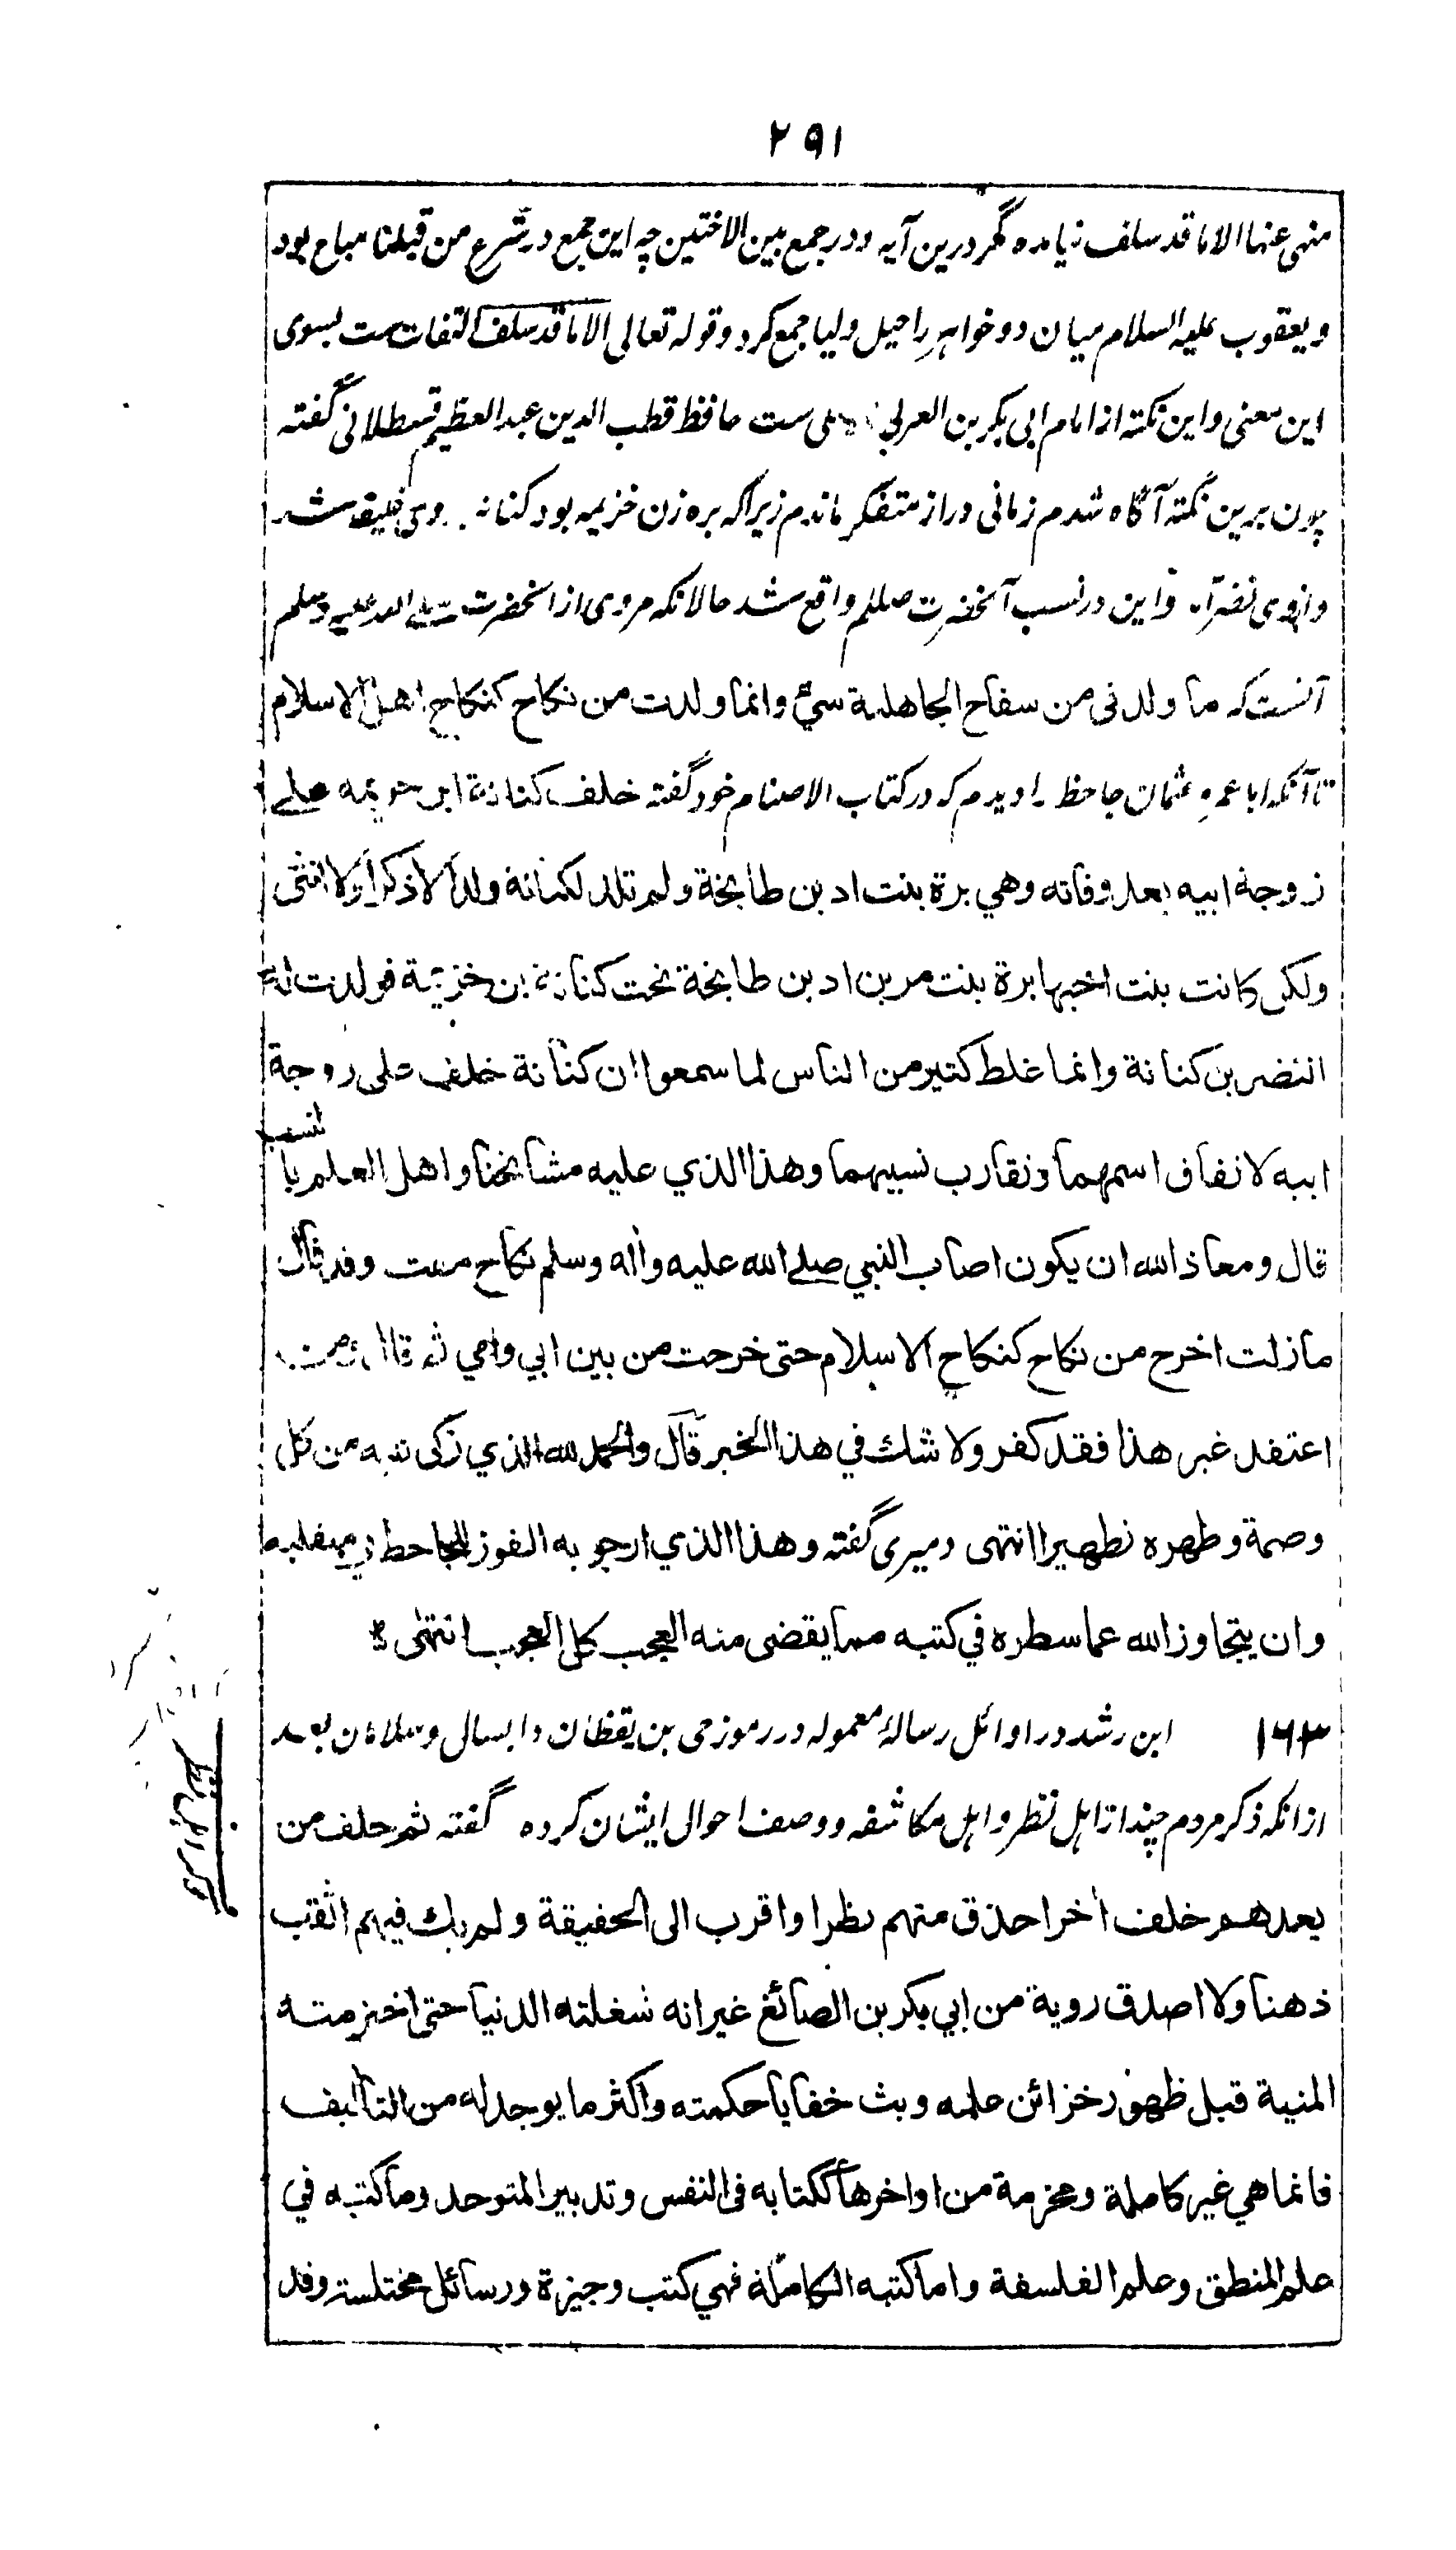 ۲۹۱
منہی عنہا الا ما قد سلف نیامدہ مگر درین آیہ ودر جمع بین الاختین چہ این جمع در شرع من قبلنا مباح بود
ویعقوب علیہ السلام میان دو خواہر راحیل ولیا جمع کرد وقولہ تعالی الا ما قد سلف التفات ست بسوی
این معنی واین نکتہ از امام ابی بکر بن العربی ست حافظ قطب الدین عبد العظیم قسطلانی گفتہ
چون برین نکتہ آگاہ شدم زمانی دراز متفکر ماندم زیراکہ برہ زن خزیمہ بود کنانہ بروی خلیفہ شد
وازوی نضر آمد واین در نسب آنحضرت صللم واقع شد حالانکہ مروی از آنحضرت صلے اللہ علیہ وسلم
آنست کہ ما ولدنی من سفاح الجاهلية شيء وانما ولدت من نكاح كنكاح اهل الاسلام
تا آنکہ ابا عمرو عثمان جاحظ را دیدم کہ در کتاب الاصنام خود گفتہ خلف كنانة ابن خزيمه علے
زوجة ابيه بعد وفاته وهي برة بنت اد بن طابخة ولم تلد لكنانة ولدا لا ذكرا ولا انثى
ولكن كانت بنت اخيها برة بنت مر بن اد بن طابخة تحت كنانة بن خزيمة فولدت له
النضر بن كنانة وانما غلط كثير من الناس لما سمعوا ان كنانة خلف على زوجة
ابيه لاتفاق اسمهما وتقارب نسبهما وهذا الذي عليه مشايخنا واهل العلم بالنسب
قال ومعاذ الله ان يكون اصاب النبي صلے الله عليه وأله وسلم نكاح مقت وقد قال
مازلت اخرج من نكاح كنكاح الاسلام حتى خرجت من بين ابي وامي ثم قال ومن
اعتقد غير هذا فقد كفر ولا شك في هذا الخبر قال والحمد لله الذي زكى نبيه من كل
وصمة وطهره تطهيرا انتهى دمیری گفتہ وهذا الذي ارجو به الفوز للجاحظ في منقلبه
وان يتجاوز الله عما سطره في كتبه مما يقضى منه العجب كل العجب انتهى
۱۶۳ ابن رشد در اوائل رسالۂ معمولہ در رموز حی بن یقظان وابسال وسلامان بعد
از انکہ ذکر مردم چند از اہل نظر واہل مکاشفہ ووصف احوال ایشان کردہ گفتہ ثم خلف من
بعدهم خلف أخر احذق منهم نظرا واقرب الى الحقيقة ولم يك فيهم اثقب
ذهنا ولا اصدق روية من ابي بكر بن الصائغ غير انه شغلته الدنيا حتى اخترمته
المنية قبل ظهور خزائن علمه وبث خفايا حكمته واكثر ما يوجد له من التأليف
فانما هي غير كاملة ومخرمة من اواخرها ككتابه فى النفس وتدبير المتوحد وما كتبه في
علم المنطق وعلم الفلسفة واما كتبه الكاملة فهي كتب وجيزة ورسائل مختلسة وقد
ذکر اہل نظر